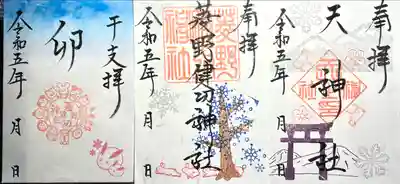 奉拝
天神社
令和五年 月 日
奉拝
菱野健功神社
令和五年 月 日
干支拝
卯
令和五年 月 日